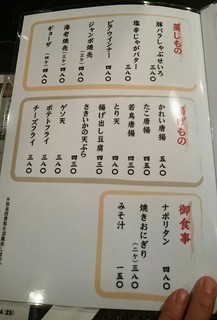 蒸しもの
豚バラしゃぶせいろ 三八〇
塩辛じゃがバター 三八〇
ビアウィンナー 四八〇
ジャンボ焼売（二ケ） 四三〇
海老焼売（四ケ） 四八〇
ギョーザ（四ケ） 四八〇
揚げもの
かれい唐揚 五八〇
たこ唐揚 四八〇
若鳥唐揚 四八〇
とり天 四八〇
揚げ出し豆腐 四三〇
さきいかの天ぷら 四三〇
ゲソ天 四八〇
ポテトフライ 三八〇
チーズフライ 三八〇
御食事
ナポリタン 四八〇
焼きおにぎり（二ケ） 三八〇
みそ汁 一五〇